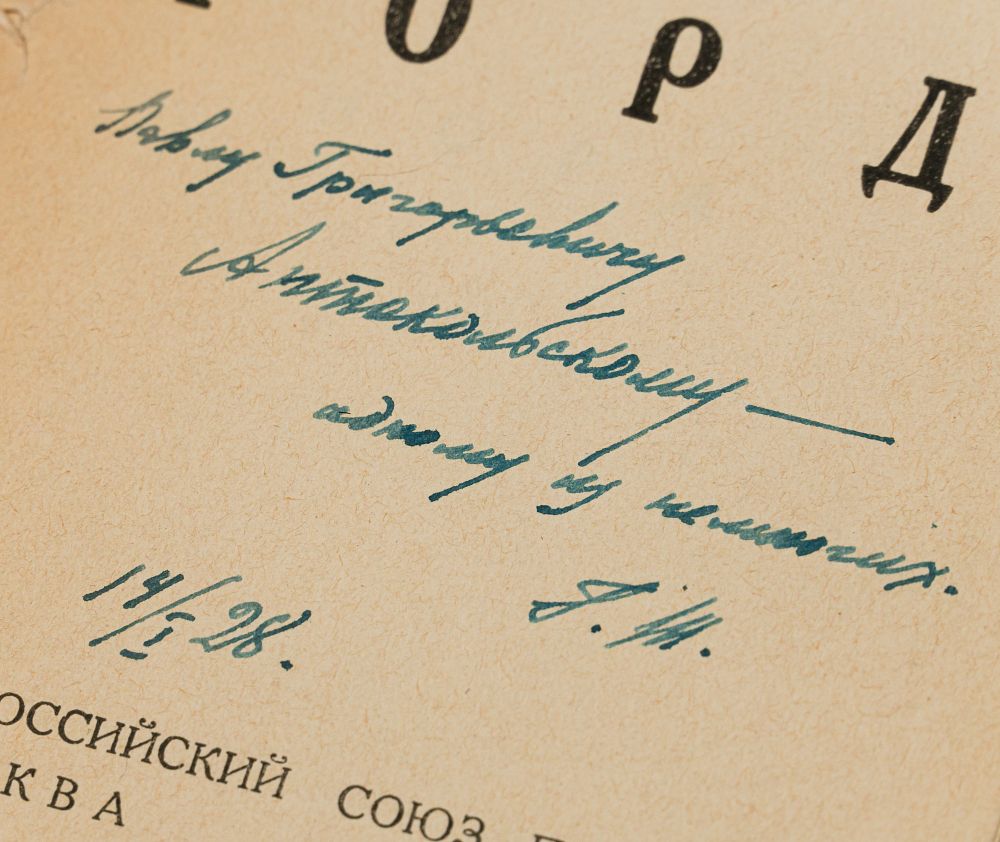 ОРД
Павлу Григорьевичу
Антокольскому —
одному из немногих.
14/I 28.
Г. Ш.
ОССИЙСКИЙ СОЮЗ П
КВА